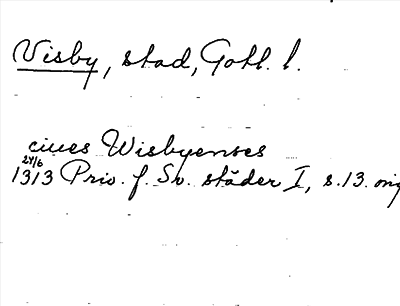 Visby, stad, Gotl. l.
cives Wisbyenses
24/6
1313 Priv. f. Sv. städer I, s. 13. orig